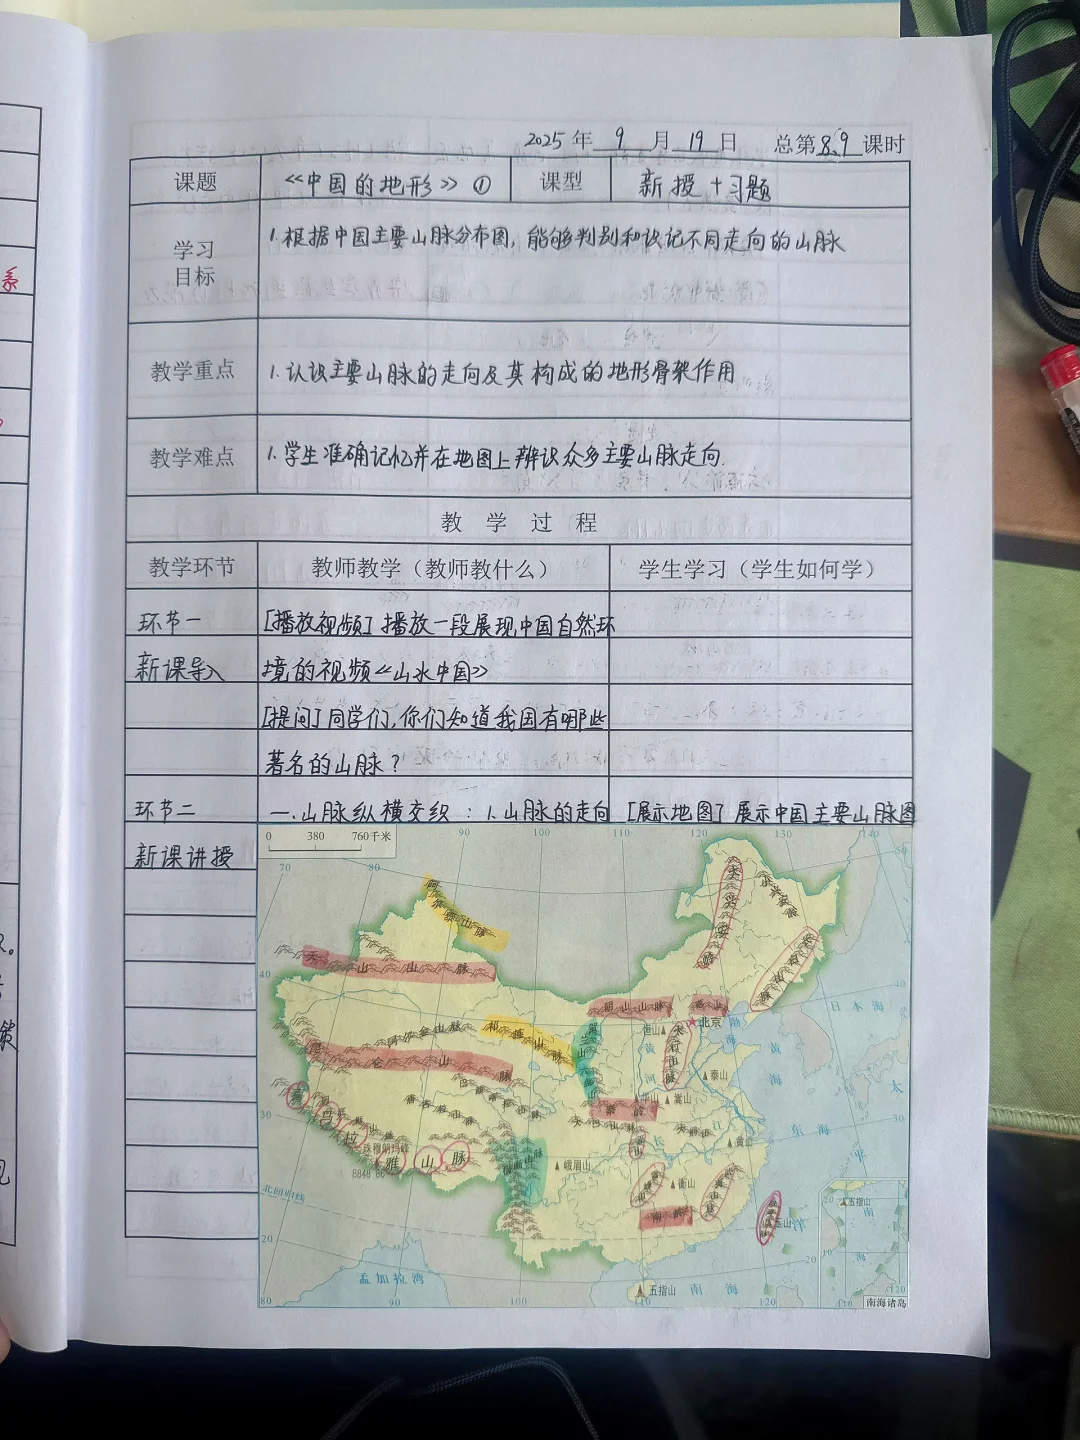 2025年 9 月 19 日 总第8.9课时
课题 《中国的地形》① 课型 新授+习题
学习
目标
1.根据中国主要山脉分布图，能够判别和识记不同走向的山脉
教学重点 1.认识主要山脉的走向及其构成的地形骨架作用
教学难点 1.学生准确记忆并在地图上辨识众多主要山脉走向.
教 学 过 程
教学环节 教师教学（教师教什么） 学生学习（学生如何学）
环节一 [播放视频] 播放一段展现中国自然环
新课导入 境的视频《山水中国》
[提问] 同学们，你们知道我国有哪些
著名的山脉？
环节二 一.山脉纵横交织：1.山脉的走向 [展示地图] 展示中国主要山脉图
新课讲授
0 380 760千米
70 80 90 100 110 120 130 140
50
阿尔泰山脉
大兴安岭
小兴安岭
长白山脉
天山山脉
40
40
日本海
阴山山脉
燕山
北京
恒山
太行山脉
渤海
黄河
黄海
祁连山脉
阿尔金山脉
贺兰山
昆仑山脉
泰山
华山
嵩山
秦岭
太
平
30
30
唐古拉山脉
喜马拉雅山脉
珠穆朗玛峰
8848.86
大巴山脉
巫山
长江
黄山
东海
横断山脉
峨眉山
衡山
武夷山脉
南岭
玉山
北回归线
20
20
孟加拉湾
五指山
南海
五指山
南海
10
80 90 100 110 120
110 120
南海诸岛
系